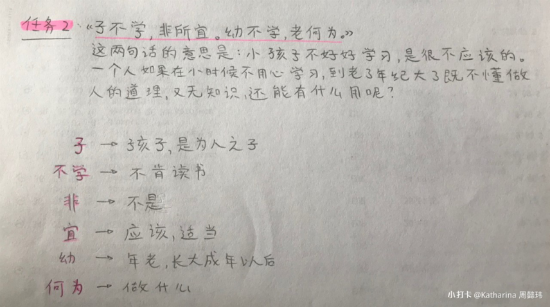 任务2 《子不学,非所宜。幼不学,老何为。》
这两句话的意思是:小孩子不好好学习,是很不应该的。
一个人如果在小时候不用心学习,到老了年纪大了既不懂做
人的道理,又无知识,还能有什么用呢?
子 → 子孩子,是为人之子
不学 → 不肯读书
非 → 不是
宜 → 应该,适当
幼 → 年老,长大成年以人后
何为 → 做什么
小打卡 @Katharina 周懿玮